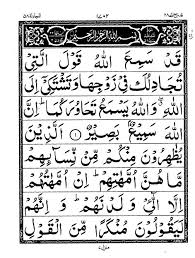 بِسْمِ اللهِ الرَّحْمٰنِ الرَّحِيْمِ
قَدْ سَمِعَ اللهُ قَوْلَ الَّتِيْ
تُجَادِلُكَ فِيْ زَوْجِهَا وَتَشْتَكِيْٓ اِلَى
اللهِ ۖ وَاللهُ يَسْمَعُ تَحَاوُرَكُمَا ؕ اِنَّ
اللهَ سَمِيْعٌۢ بَصِيْرٌ ۝١ اَلَّذِيْنَ
يُظٰهِرُوْنَ مِنْكُمْ مِّنْ نِّسَآئِهِمْ
مَّا هُنَّ اُمَّهٰتِهِمْ ؕ اِنْ اُمَّهٰتُهُمْ
اِلَّا الّٰٓـِٔيْ وَلَدْنَهُمْ ؕ وَاِنَّهُمْ
لَيَقُوْلُوْنَ مُنْكَرًا مِّنَ الْقَوْلِ
منزل٧